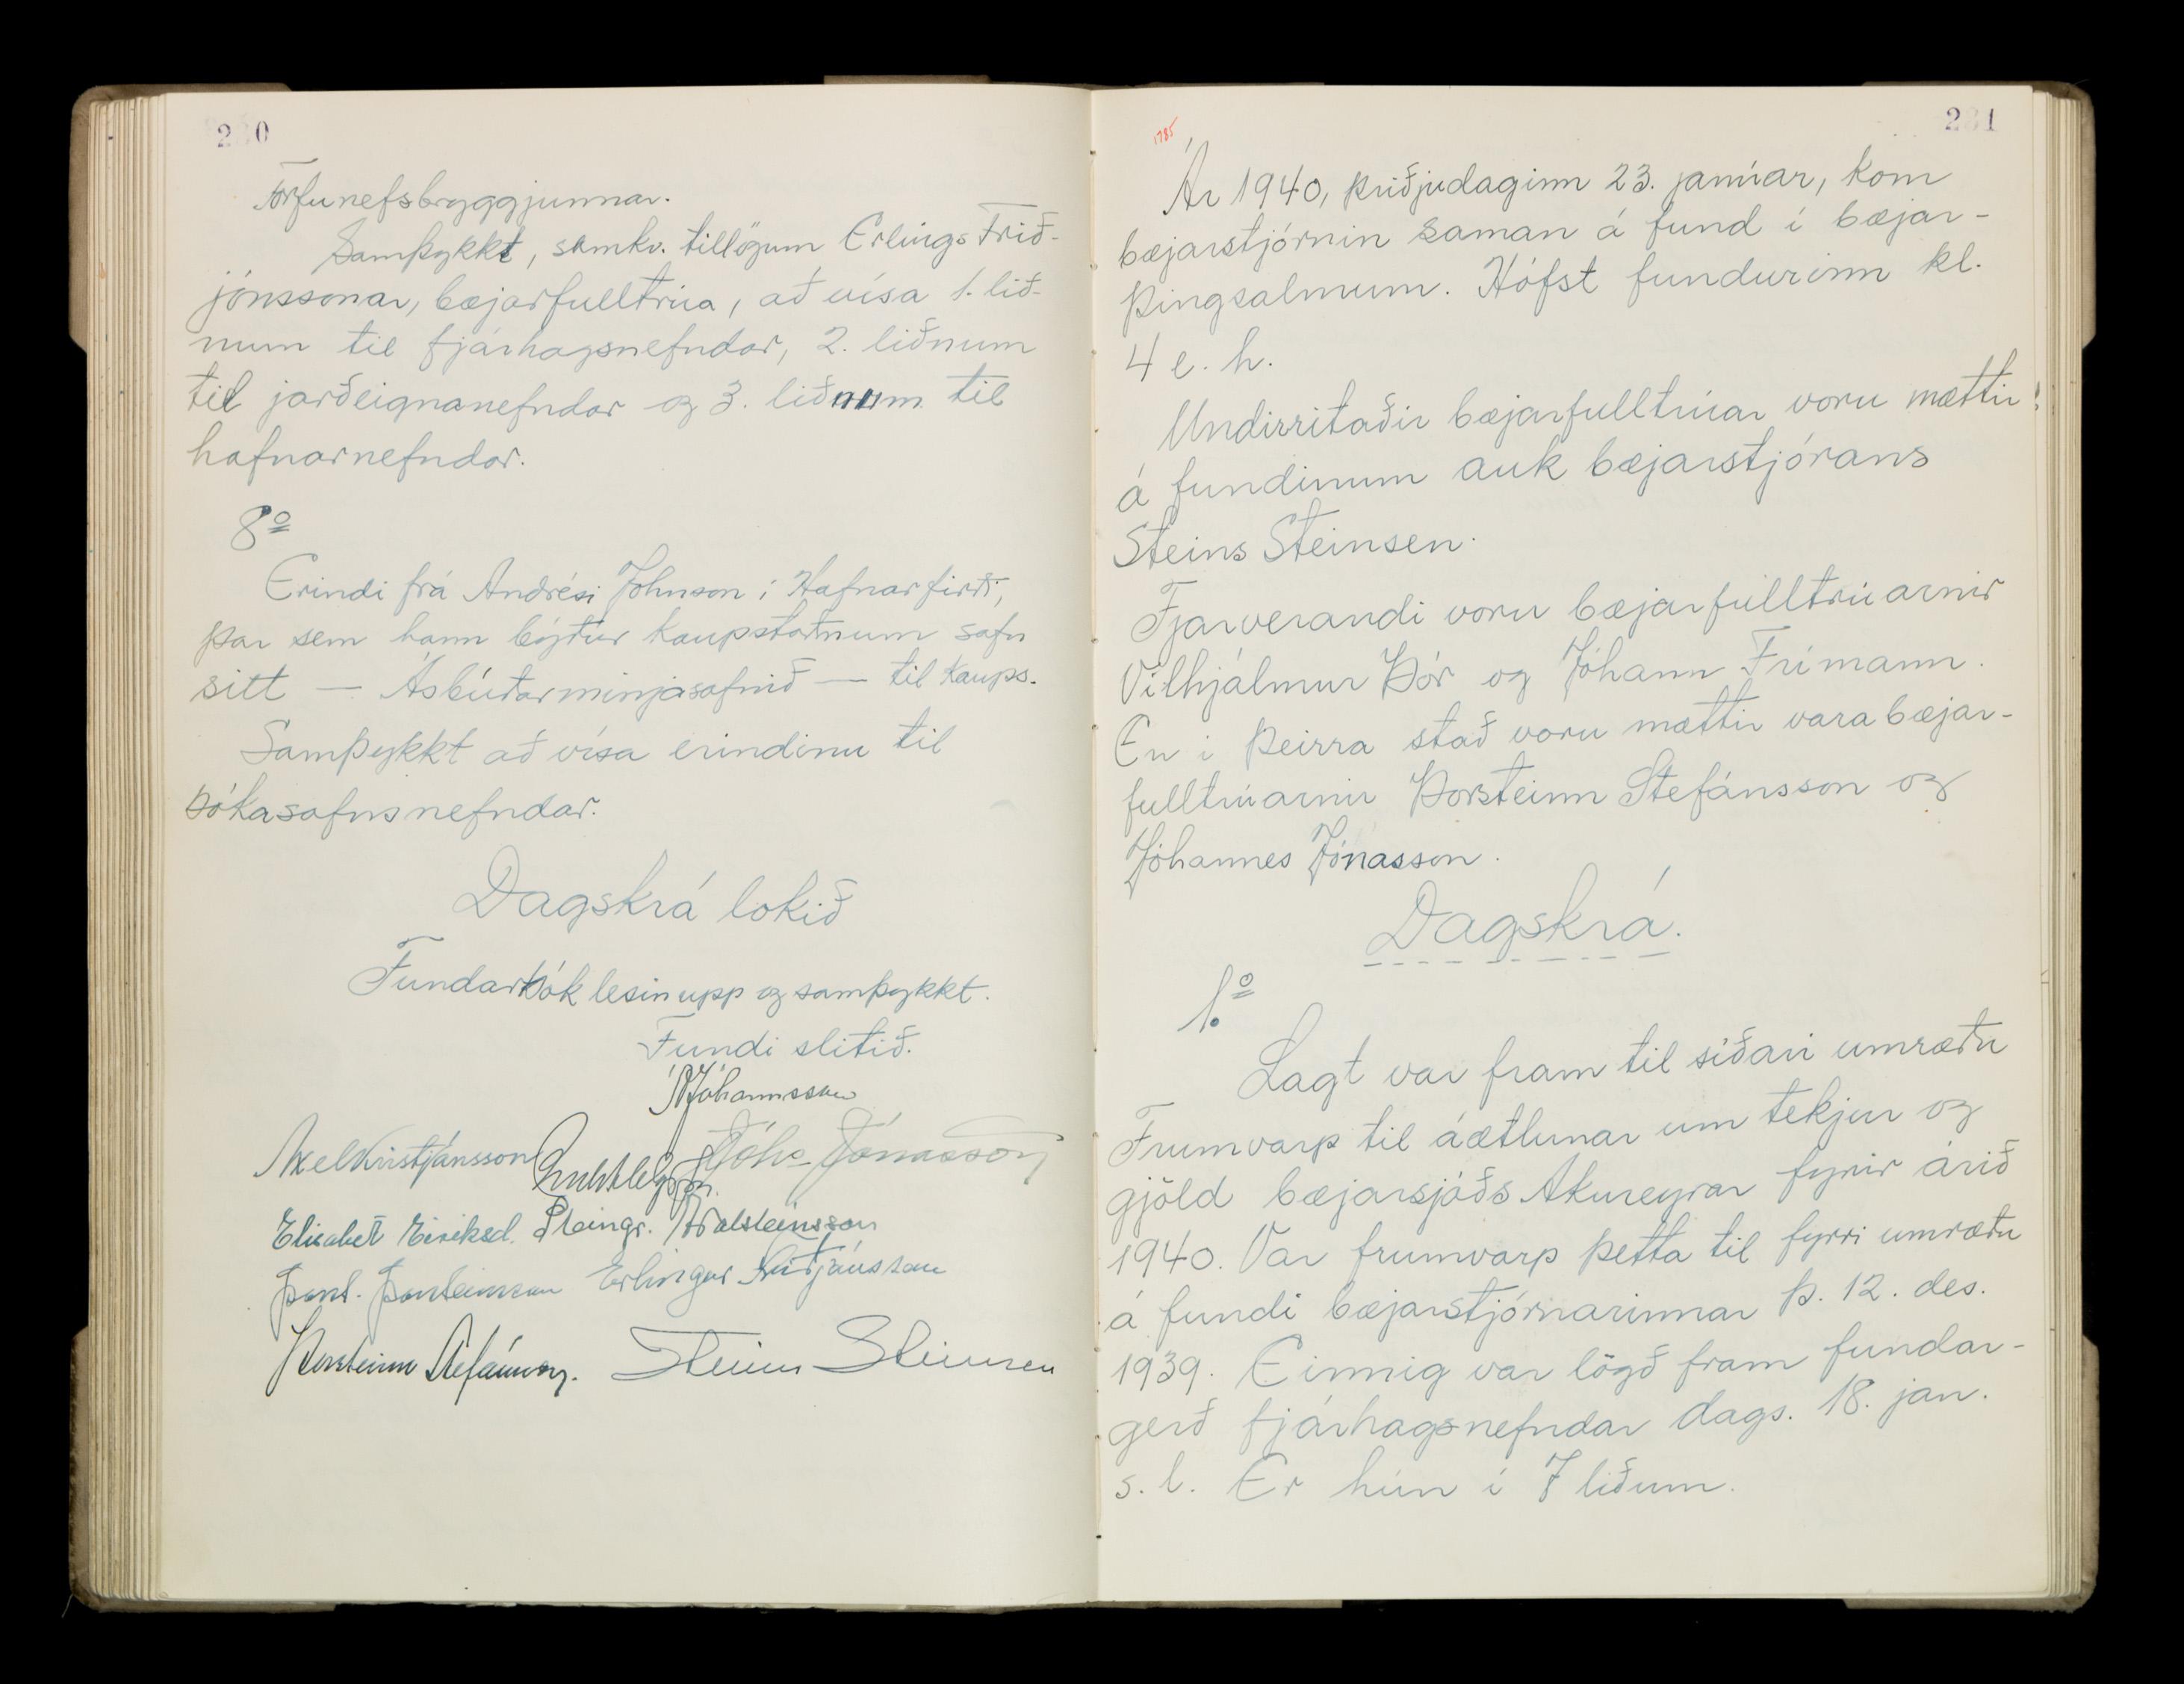 230
Torfunefsbryggjunnar.
Samþykkt, samkv. tillögum Erlings Frið-
jónssonar, bæjarfulltrúa, að vísa 1. lið-
num til fjárhagsnefndar, 2. liðnum
til jarðeignanefndar og 3. liðnum til
hafnarnefndar.
8o
Erindi frá Andrési Johnson í Hafnarfirði,
þar sem hann býður kaupstaðnum safn
sitt — Ásbúðarminjasafnið — til kaups.
Samþykkt að vísa erindinu til
bókasafnsnefndar.
Dagskrá lokið
Fundarbók lesin upp og samþykkt.
Fundi slitið.
Jóhannsson
Axel Kristjánsson Jóh. Jónasson
Elísabet Eiríksd. Steingr. Aðalsteinsson
Þorst. Þorsteinsson Erlingur Friðjónsson
Þorsteinn Stefánsson. Steinn Steinsen
1785
231
Ár 1940, þriðjudaginn 23. janúar, kom
bæjarstjórnin saman á fund í bæjar-
þingsalnum. Hófst fundurinn kl.
4 e. h.
Undirritaðir bæjarfulltrúar voru mættir
á fundinum auk bæjarstjórans
Steins Steinsen.
Fjarverandi voru bæjarfulltrúarnir
Vilhjálmur Þór og Jóhann Frímann.
En í þeirra stað voru mættir varabæjar-
fulltrúarnir Þorsteinn Stefánsson og
Jóhannes Jónasson.
Dagskrá.
1.o
Lagt var fram til síðari umræðu
Frumvarp til áætlunar um tekjur og
gjöld bæjarsjóðs Akureyrar fyrir árið
1940. Var frumvarp þetta til fyrri umræðu
á fundi bæjarstjórnarinnar þ. 12. des.
1939. Einnig var lögð fram fundar-
gerð fjárhagsnefndar dags. 18. jan.
s. l. Er hún í 7 liðum.